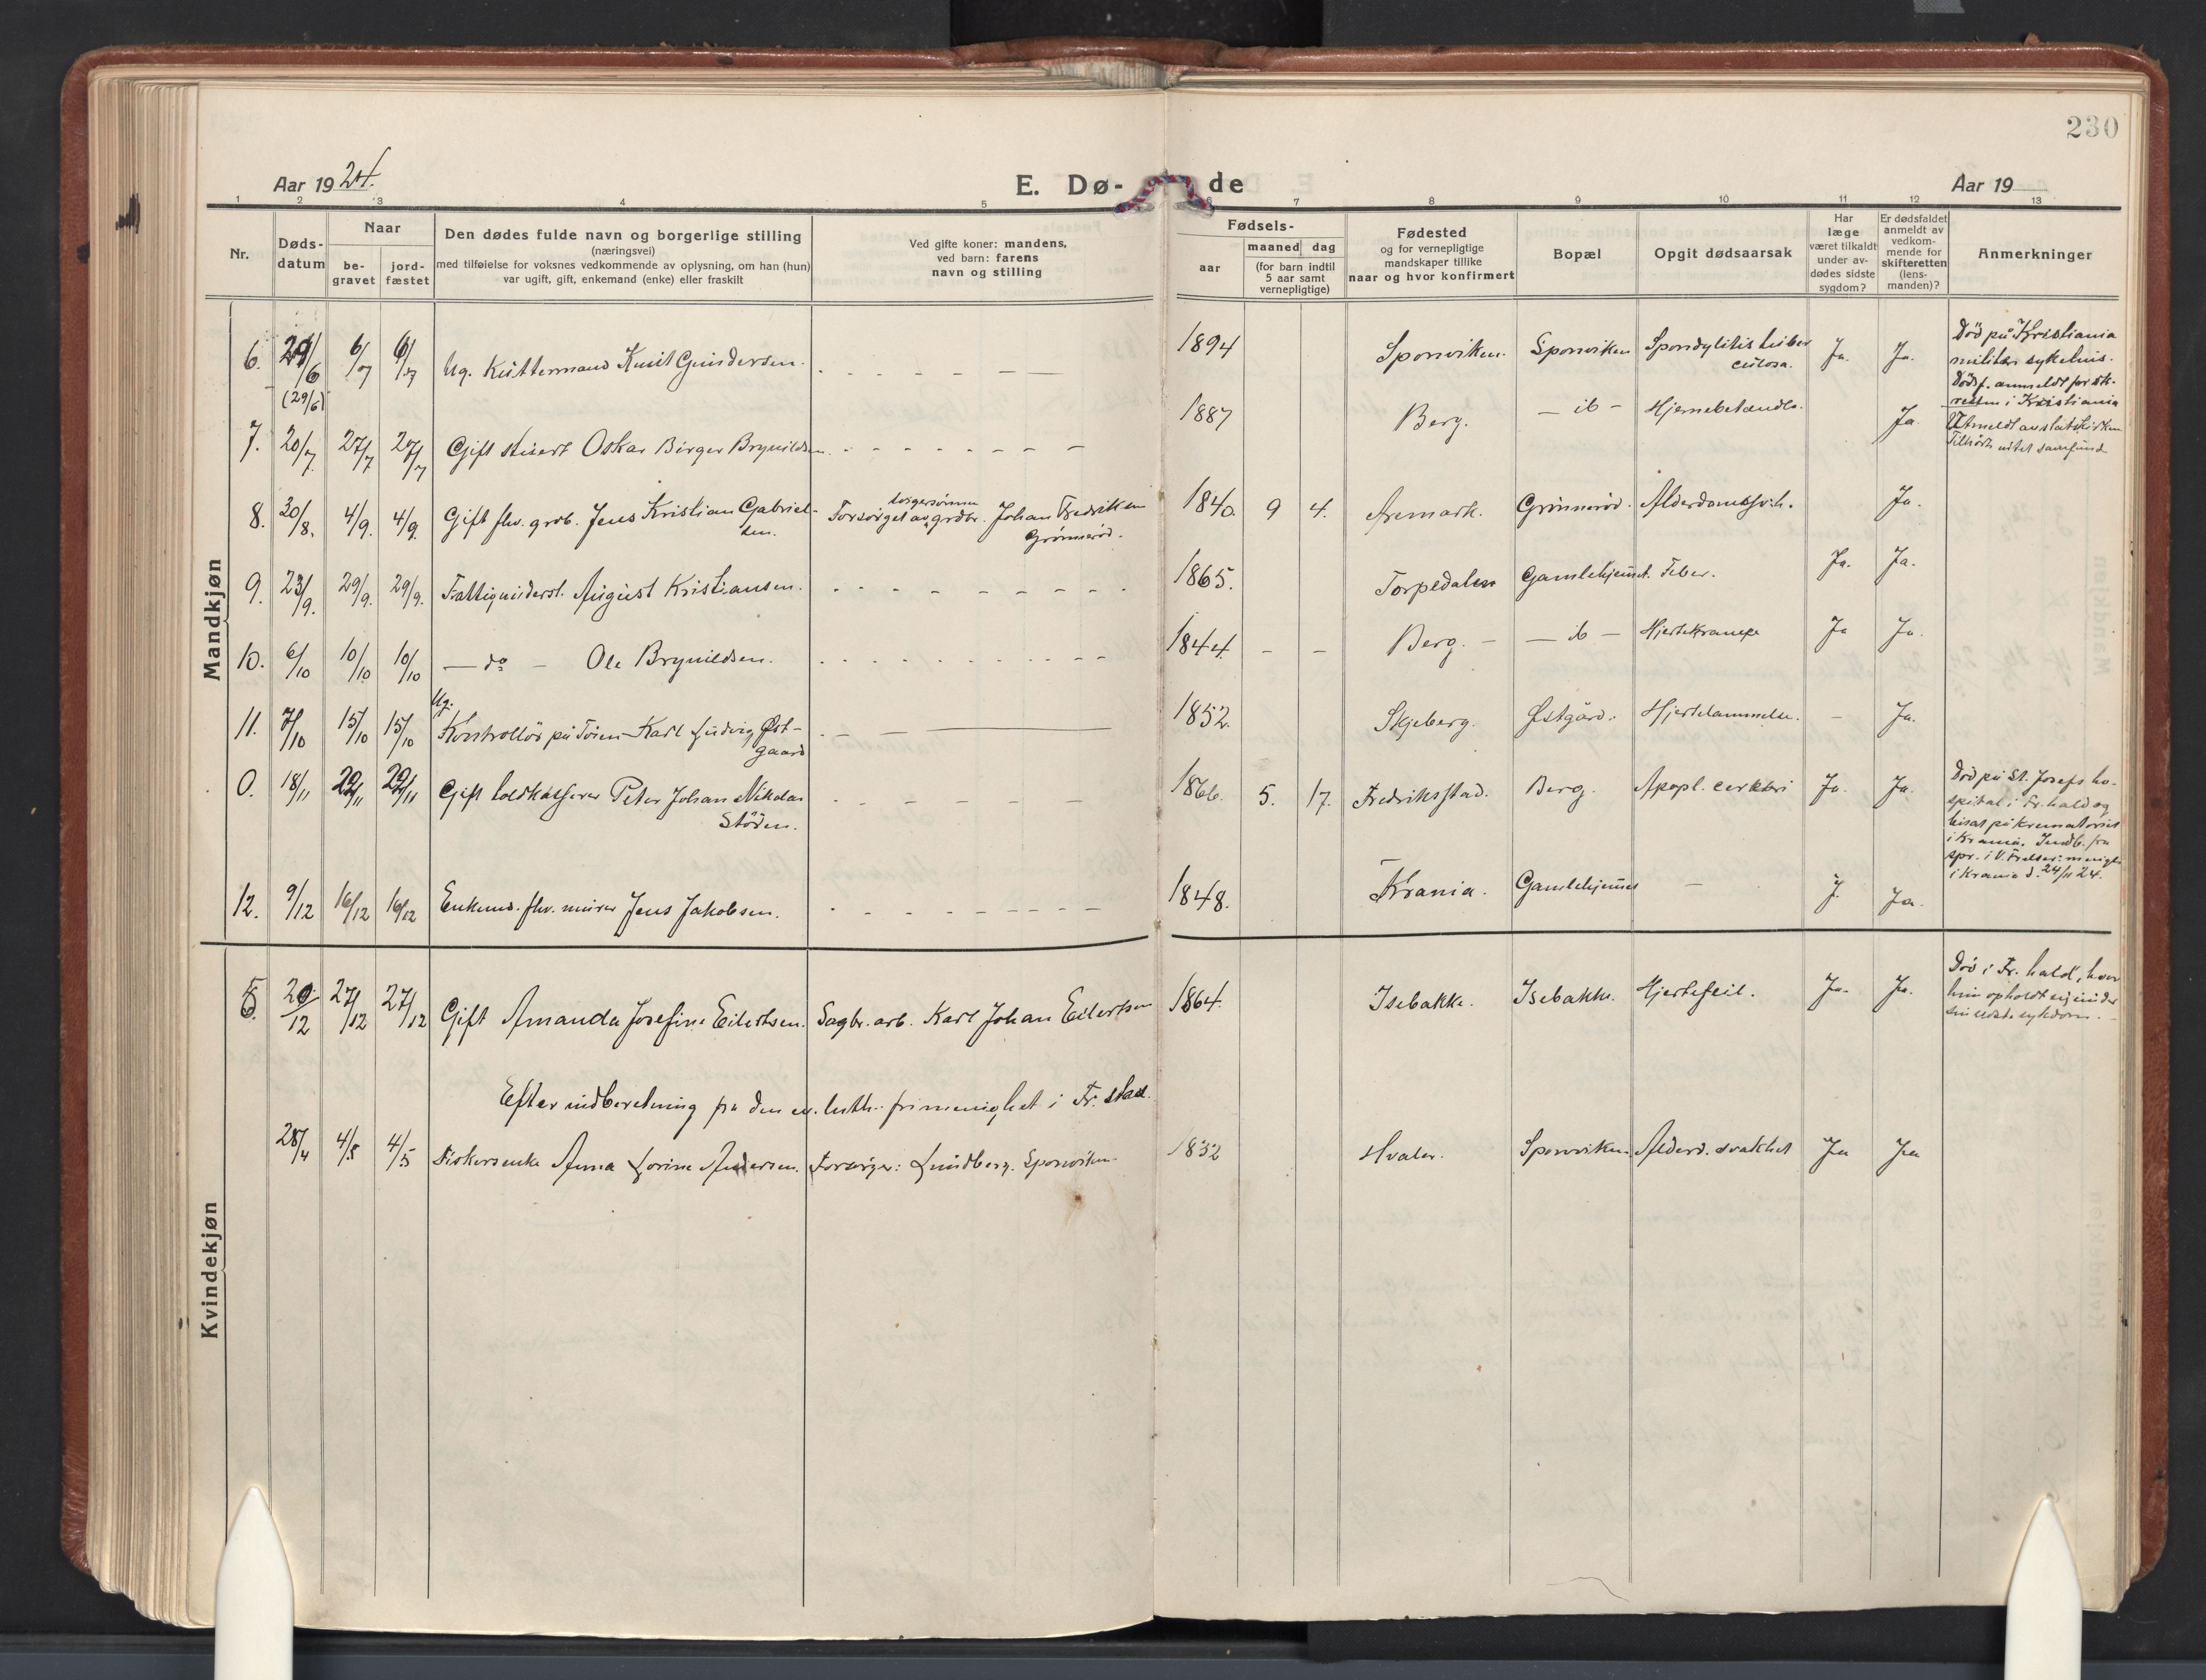 230
Aar 1924.
E. Dø-
de
Aar 19
1 2 3 4 5 6 7 8 9 10 11 12 13
Nr.
Døds-
datum
Naar
be-
gravet
jord-
fæstet
Den dødes fulde navn og borgerlige stilling
(næringsvei)
med tilføielse for voksnes vedkommende av oplysning, om han (hun)
var ugift, gift, enkemand (enke) eller fraskilt
Ved gifte koner: mandens,
ved barn: farens
navn og stilling
Fødsels-
aar
maaned dag
(for barn indtil
5 aar samt
vernepligtige)
Fødested
og for vernepligtige
mandskaper tillike
naar og hvor konfirmert
Bopæl
Opgit dødsaarsak
Har
læge
været tilkaldt
under av-
dødes sidste
sygdom?
Er dødsfaldet
anmeldt av
vedkom-
mende for
skifteretten
(lens-
manden)?
Anmerkninger
Mandkjøn
6. 29/6 6/7 6/7 Ug. Kuttermand Knut Gundersen. 1894 Sponviken. Sponviken Spondylitis tuber
culosa. Ja. Ja.
(29/6)
Død på Kristiania
militær sykehus.
Dødsf. anmeldt for sk.
retten i Kristiania
7. 20/7 27/7 27/7 Gift stuert Oskar Birger Brynildsen. 1887 Berg. – ib – Hjernebetændls. Ja.
Utmeldt av statskirken
Tilhørte intet samfund
8. 30/8. 4/9. 4/9. Gift fhv. grdb. Jens Kristian Gabriel-
sen.
svigersønnen
Forsørget av grdbr. Johan Fredriksen
Grønnerød.
1840. 9 4. Aremark. Grønnerød. Alderdomssvkh. Ja.
9. 23/9. 29/9. 29/9. Fattigunderst. August Kristiansen. 1865. Torpedalen Gamlehjemmet. Feber. Ja. Ja.
10. 6/10 10/10 10/10 – do – Ole Brynildsen. 1844. – – Berg. – – ib – Hjertekrampe Ja Ja.
Ug.
11. 7/10 15/10 15/10 Kontrollør på Toien Karl Ludvig Øst-
gaard
1852. Skjeberg. Østgård. Hjertelammelse. – Ja.
0. 18/11 22/11 22/11 Gift toldkasserer Peter Johan Nikolai
Stören.
1866. 5. 17. Fredriksstad. Berg. Apopl. cerebri Ja. Ja.
Død på St. Josefs ho-
spital i Fr.hald og
bisat på krematoriet
i Krania. Indb. fra
spr. i V. Frelser. menigh.
i Krania d. 24/11 24.
12. 9/12 16/12 16/12 Enkemd. fhv. murer Jens Jakobsen. 1848. Krania. Gamlehjemmet – J. Ja.
Kvindekjøn
6. 20/12 27/12 27/12 Gift Amanda Josefine Eilertsen. Sagbr. arb. Karl Johan Eilertsen 1864. Isebakke. Isebakke. Hjertefeil. Ja. Ja.
Død i Fr.hald, hvor
hun opholdt sig under
sin sidste sykdom.
Efter indberetning fra den ev. luth. frimenighet i Fr.stad.
28/4 4/5 4/5 Fiskerenke Anna Lorine Andersen. Forsørger: Lundberg. Sponviken. 1832 Hvaler. Sponviken Alderd. svakhet Ja Ja